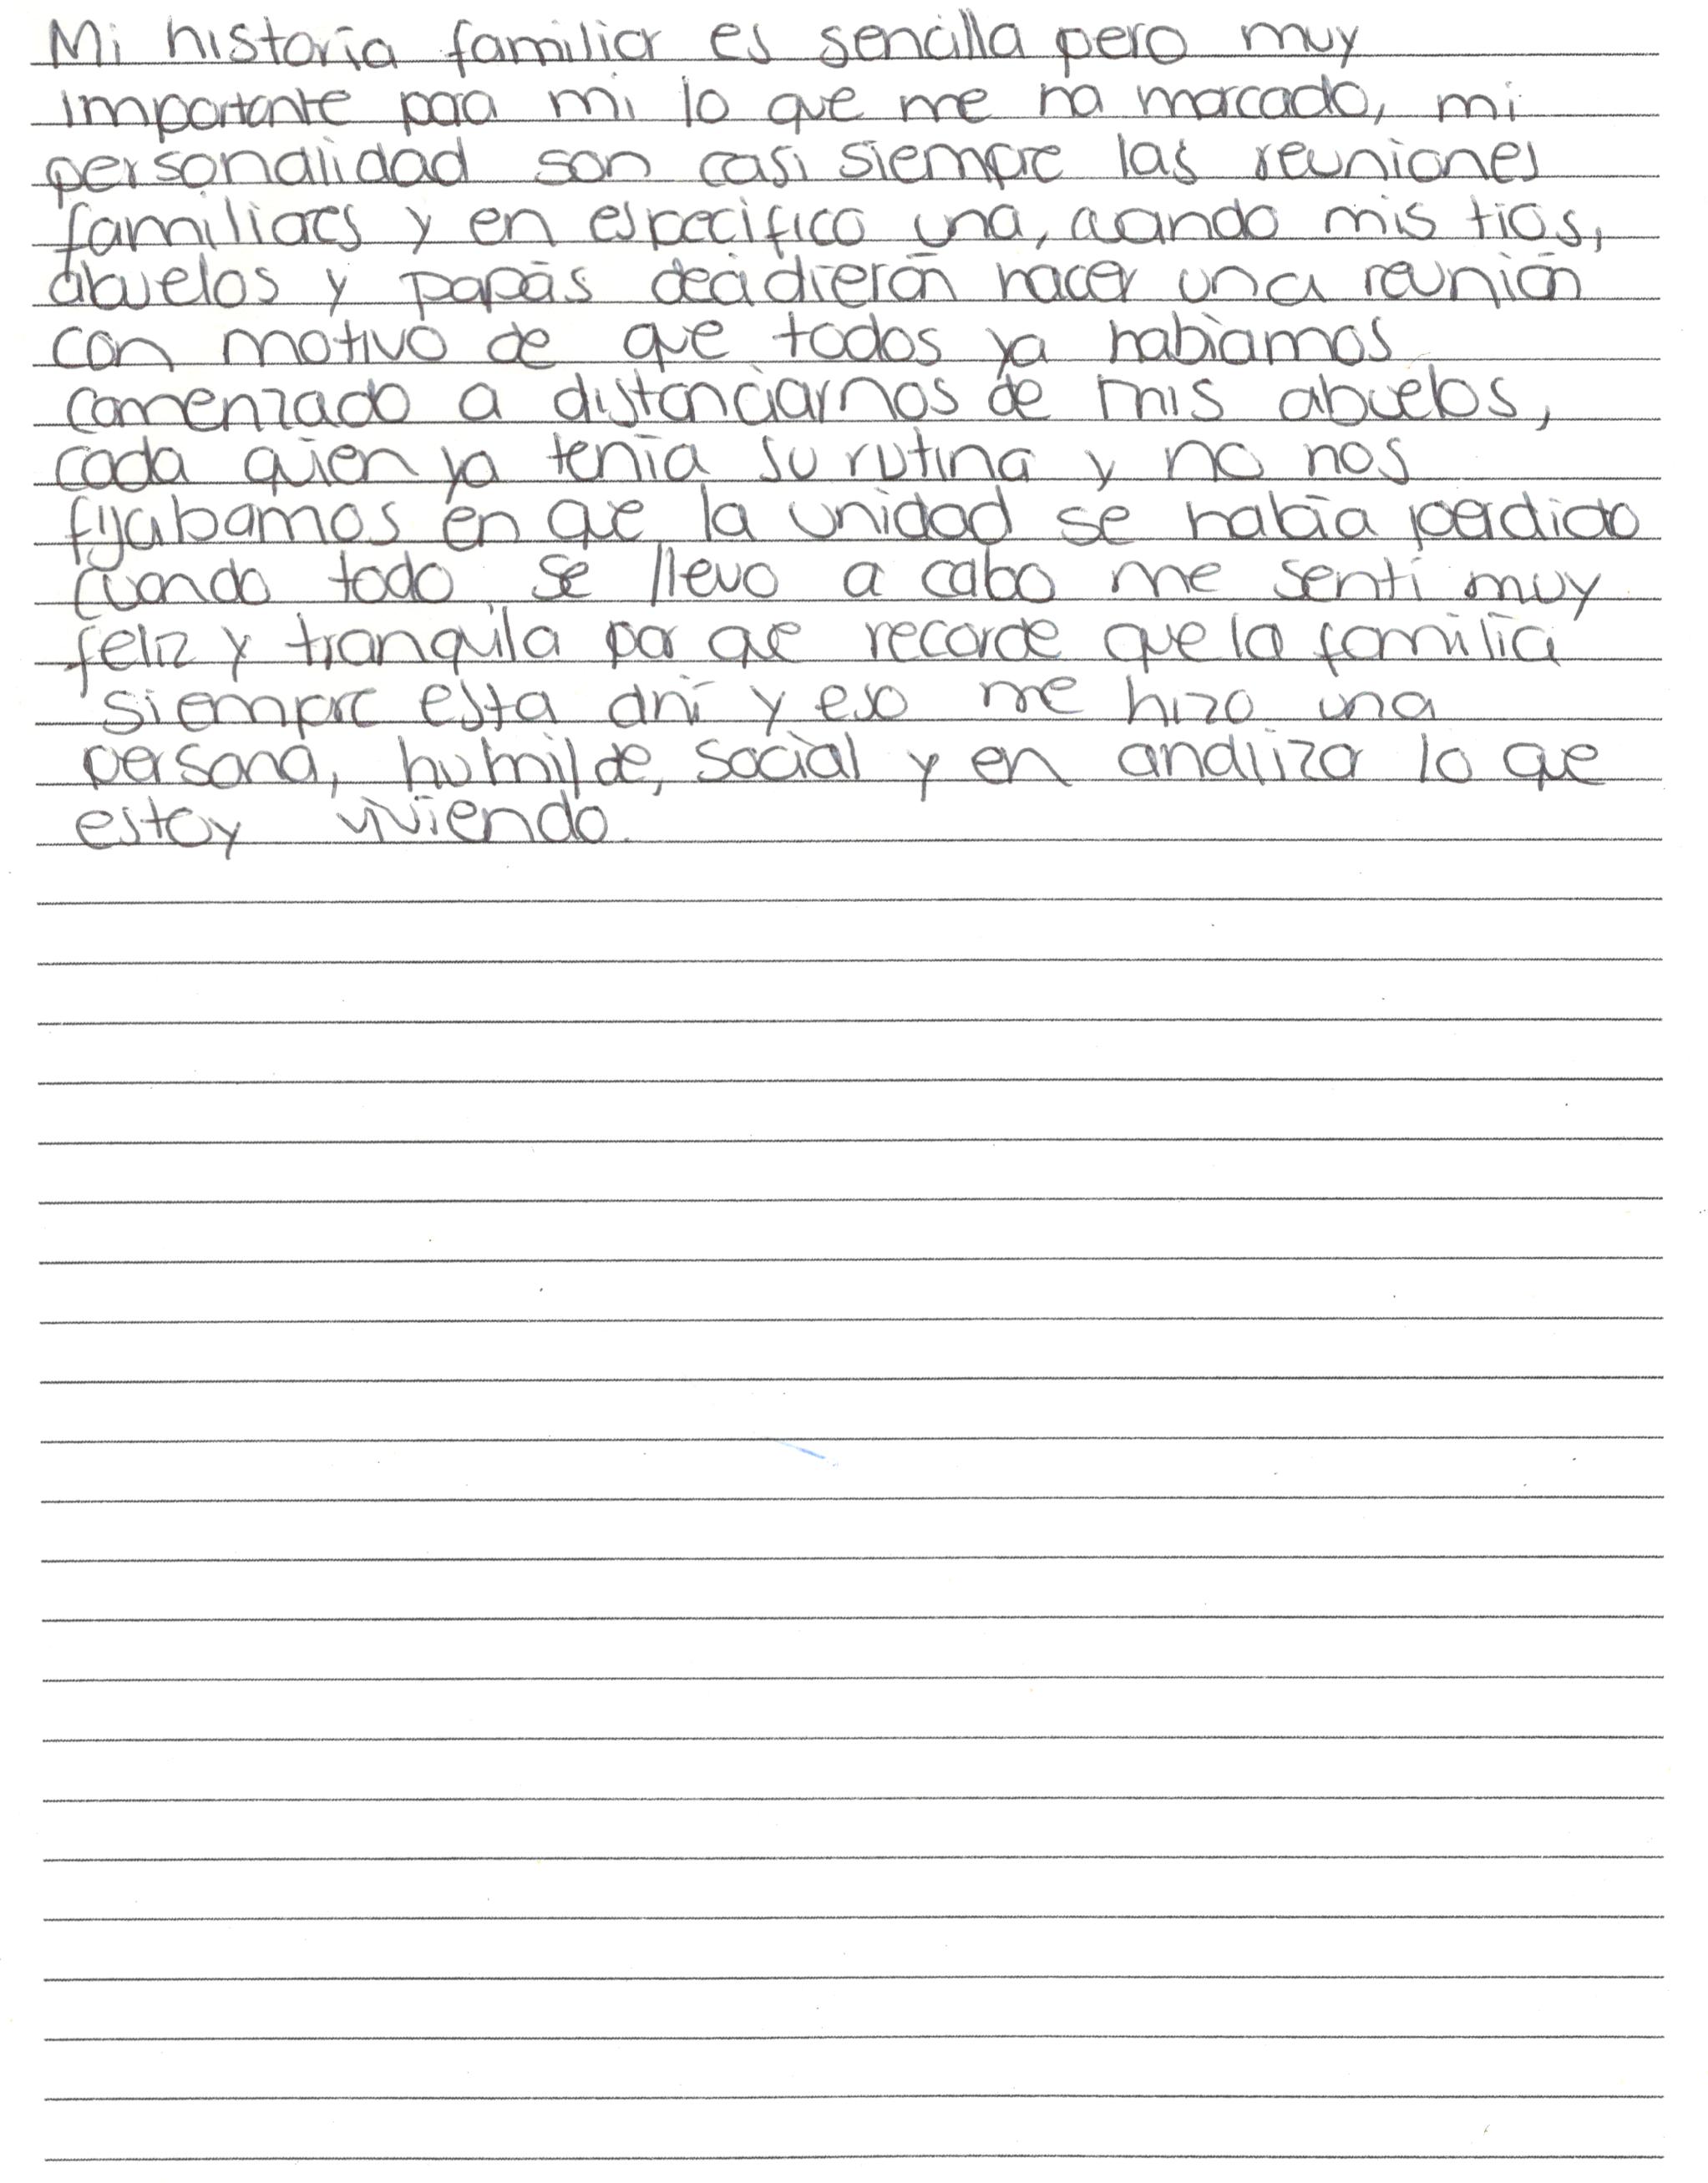 Mi historia familiar es sencilla pero muy
importante para mi lo que me ha marcado, mi
personalidad son casi siempre las reuniones
familiares y en especifico una, cuando mis tios,
abuelos y papás decidierón hacer una reunión
con motivo de que todos ya habíamos
comenzado a distanciarnos de mis abuelos,
cada quien ya tenía su rutina y no nos
fijabamos en que la unidad se había perdido
cuando todo se llevo a cabo me sentí muy
feliz y tranquila por que recorde que la familia
siempre esta ahí y eso me hizo una
persona, humilde, social y en analizar lo que
estoy viviendo.